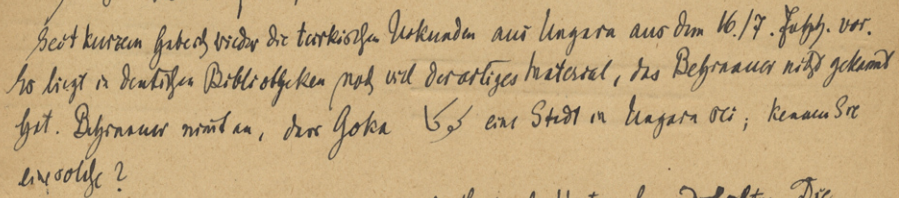 Seit kurzem habe ich wieder die türkischen Urkunden aus Ungarn aus dem 16./7. Jahrh. vor.
Es liegt in deutschen Bibliotheken noch viel derartiges Material, das Behrnauer nicht gekannt
hat. Behrnauer nimt an, dass Goka eine Stadt in Ungarn sei; kennen Sie
eine solche?
Die